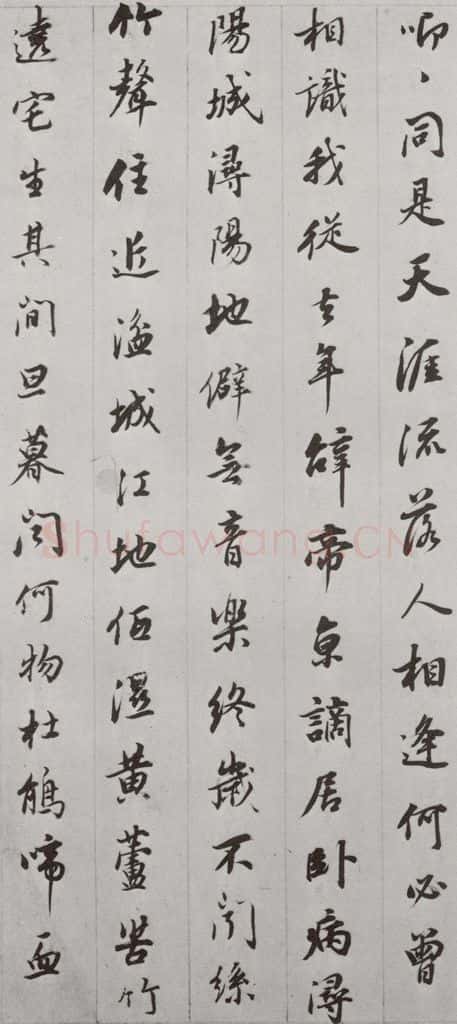 唧、同是天涯流落人相逢何必曾
相識我從去年辭帝京謫居卧病潯
陽城潯陽地僻無音樂終歲不聞絲
竹聲住近湓城江地低濕黄蘆苦竹
遶宅生其間旦暮聞何物杜鵑啼血
Shufawang.CN